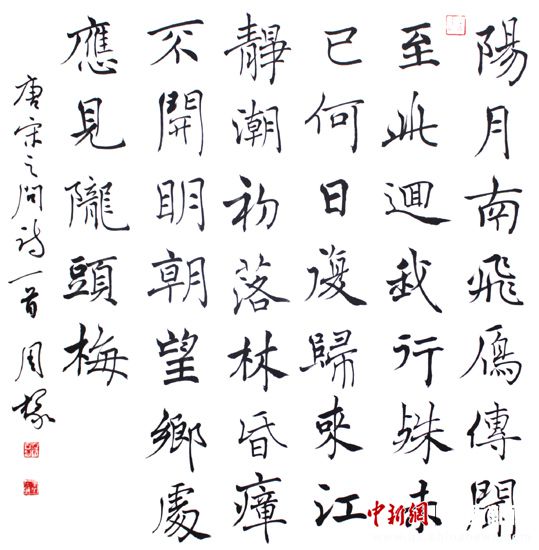 陽月南飛鴈傳聞
至此迴我行殊未
已何日復歸來江
靜潮初落林昏瘴
不開明朝望鄉處
應見隴頭梅
唐宋之問詩一首周
中新網